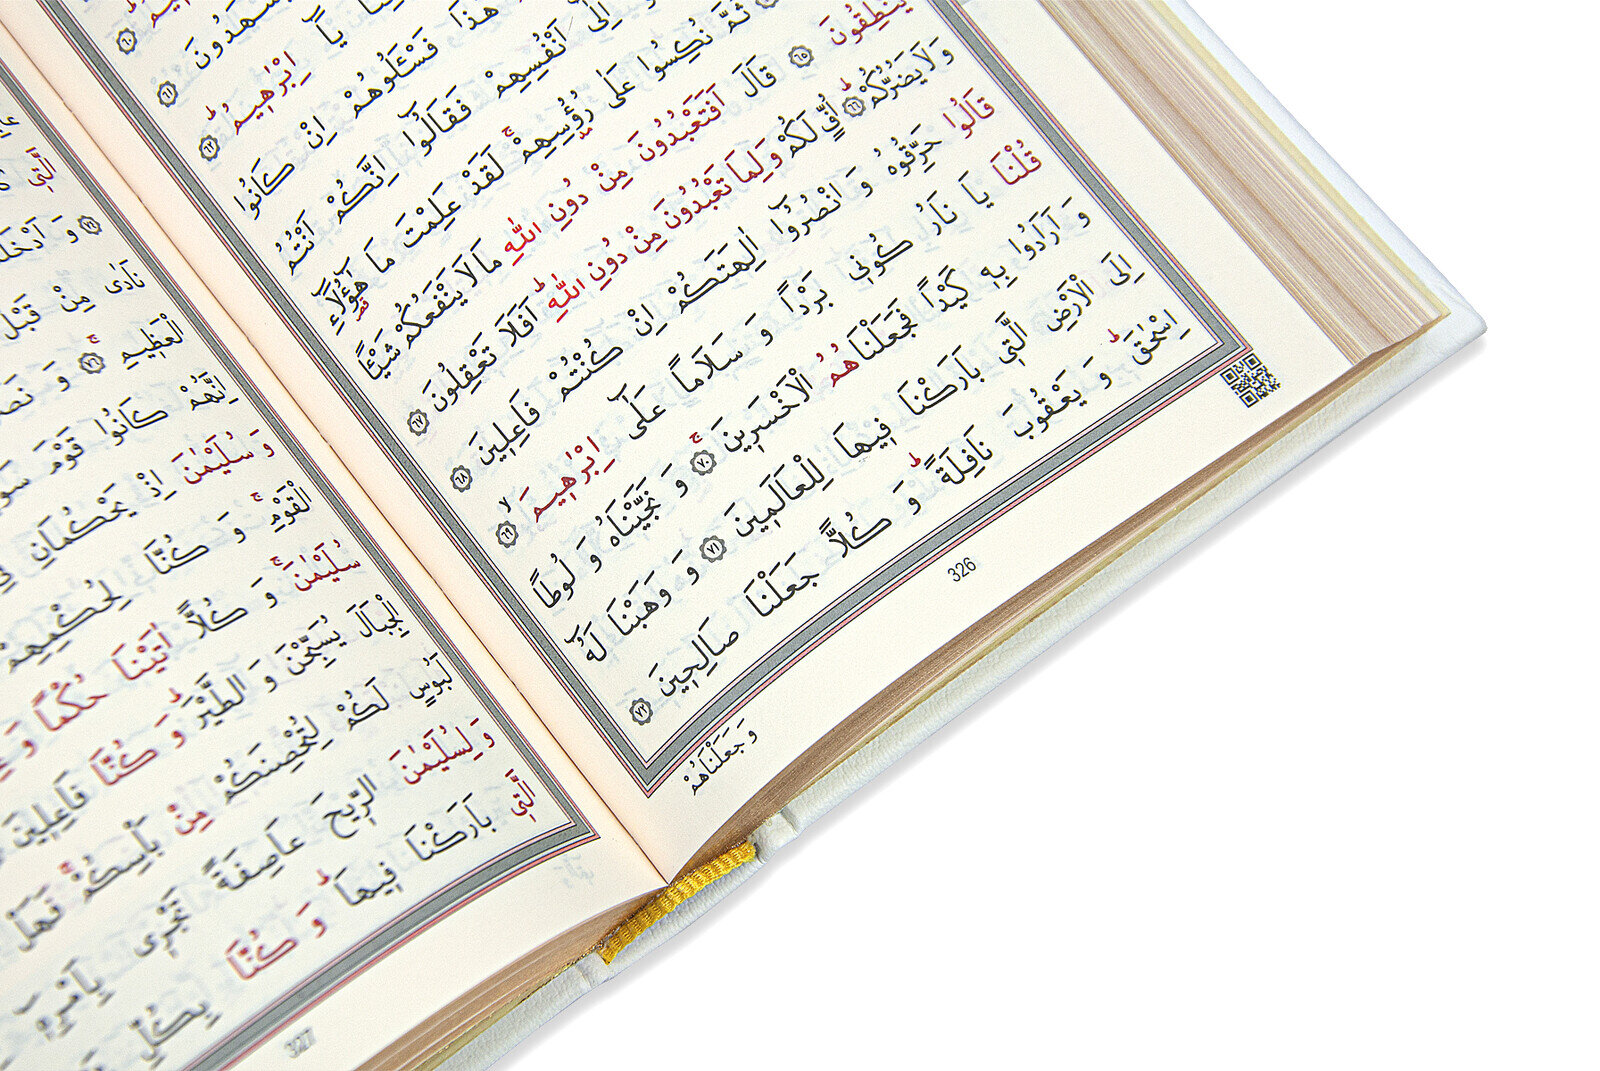 ٦٠
يَشْهَدُونَ ٦١
يَٓا اِبْرٰهِيمُ ٦٢
هٰذَا فَسْـَٔلُوهُمْ اِنْ كَانُوا
اِلٰٓى اَنْفُسِهِمْ فَقَالُٓوا اِنَّكُمْ اَنْتُمُ
ثُمَّ نُكِسُوا عَلٰى رُؤُسِهِمْ لَقَدْ عَلِمْتَ مَا هٰٓؤُلَٓاءِ
يَنْطِقُونَ ٦٥ قَالَ اَفَتَعْبُدُونَ مِنْ دُونِ اللّٰهِ مَا لَا يَنْفَعُكُمْ شَيْئًا
وَلَا يَضُرُّكُمْ ٦٦ اُفٍّ لَكُمْ وَلِمَا تَعْبُدُونَ مِنْ دُونِ اللّٰهِ اَفَلَا تَعْقِلُونَ ٦٧
قَالُوا حَرِّقُوهُ وَ انْصُرُٓوا اٰلِهَتَكُمْ اِنْ كُنْتُمْ فَاعِلِينَ ٦٨
قُلْنَا يَا نَارُ كُونِي بَرْدًا وَ سَلَامًا عَلٰٓى اِبْرٰهِيمَ ٦٩
وَ اَرَادُوا بِهِ كَيْدًا فَجَعَلْنَاهُمُ الْاَخْسَرِينَ ٧٠ وَ نَجَّيْنَاهُ وَ لُوطًا
اِلَى الْاَرْضِ الَّتِي بَارَكْنَا فِيهَا لِلْعَالَمِينَ ٧١ وَ وَهَبْنَا لَهُٓ
اِسْحٰقَ وَ يَعْقُوبَ نَافِلَةً وَ كُلًّا جَعَلْنَا صَالِحِينَ ٧٢
وَ جَعَلْنَاهُمْ
326
الَّتِي
٧٥ وَ
نَادٰى مِنْ قَبْلُ
الْعَظِيمِ ٧٦ وَ
اِنَّهُمْ كَانُوا قَوْمَ
وَ سُلَيْمٰنَ اِذْ يَحْكُمَانِ
الْقَوْمِ وَ كُنَّا لِحُكْمِهِمْ
سُلَيْمٰنَ وَ كُلًّا اٰتَيْنَا حُكْمًا وَ
الْجِبَالَ يُسَبِّحْنَ وَ الطَّيْرَ وَ كُنَّا فَاعِلِينَ
لَبُوسٍ لَكُمْ لِتُحْصِنَكُمْ مِنْ بَأْسِكُمْ فَهَلْ
وَ لِسُلَيْمٰنَ الرِّيحَ عَاصِفَةً تَجْرِي بِاَمْرِهِ
الَّتِي بَارَكْنَا فِيهَا وَ كُنَّا بِكُلِّ
327